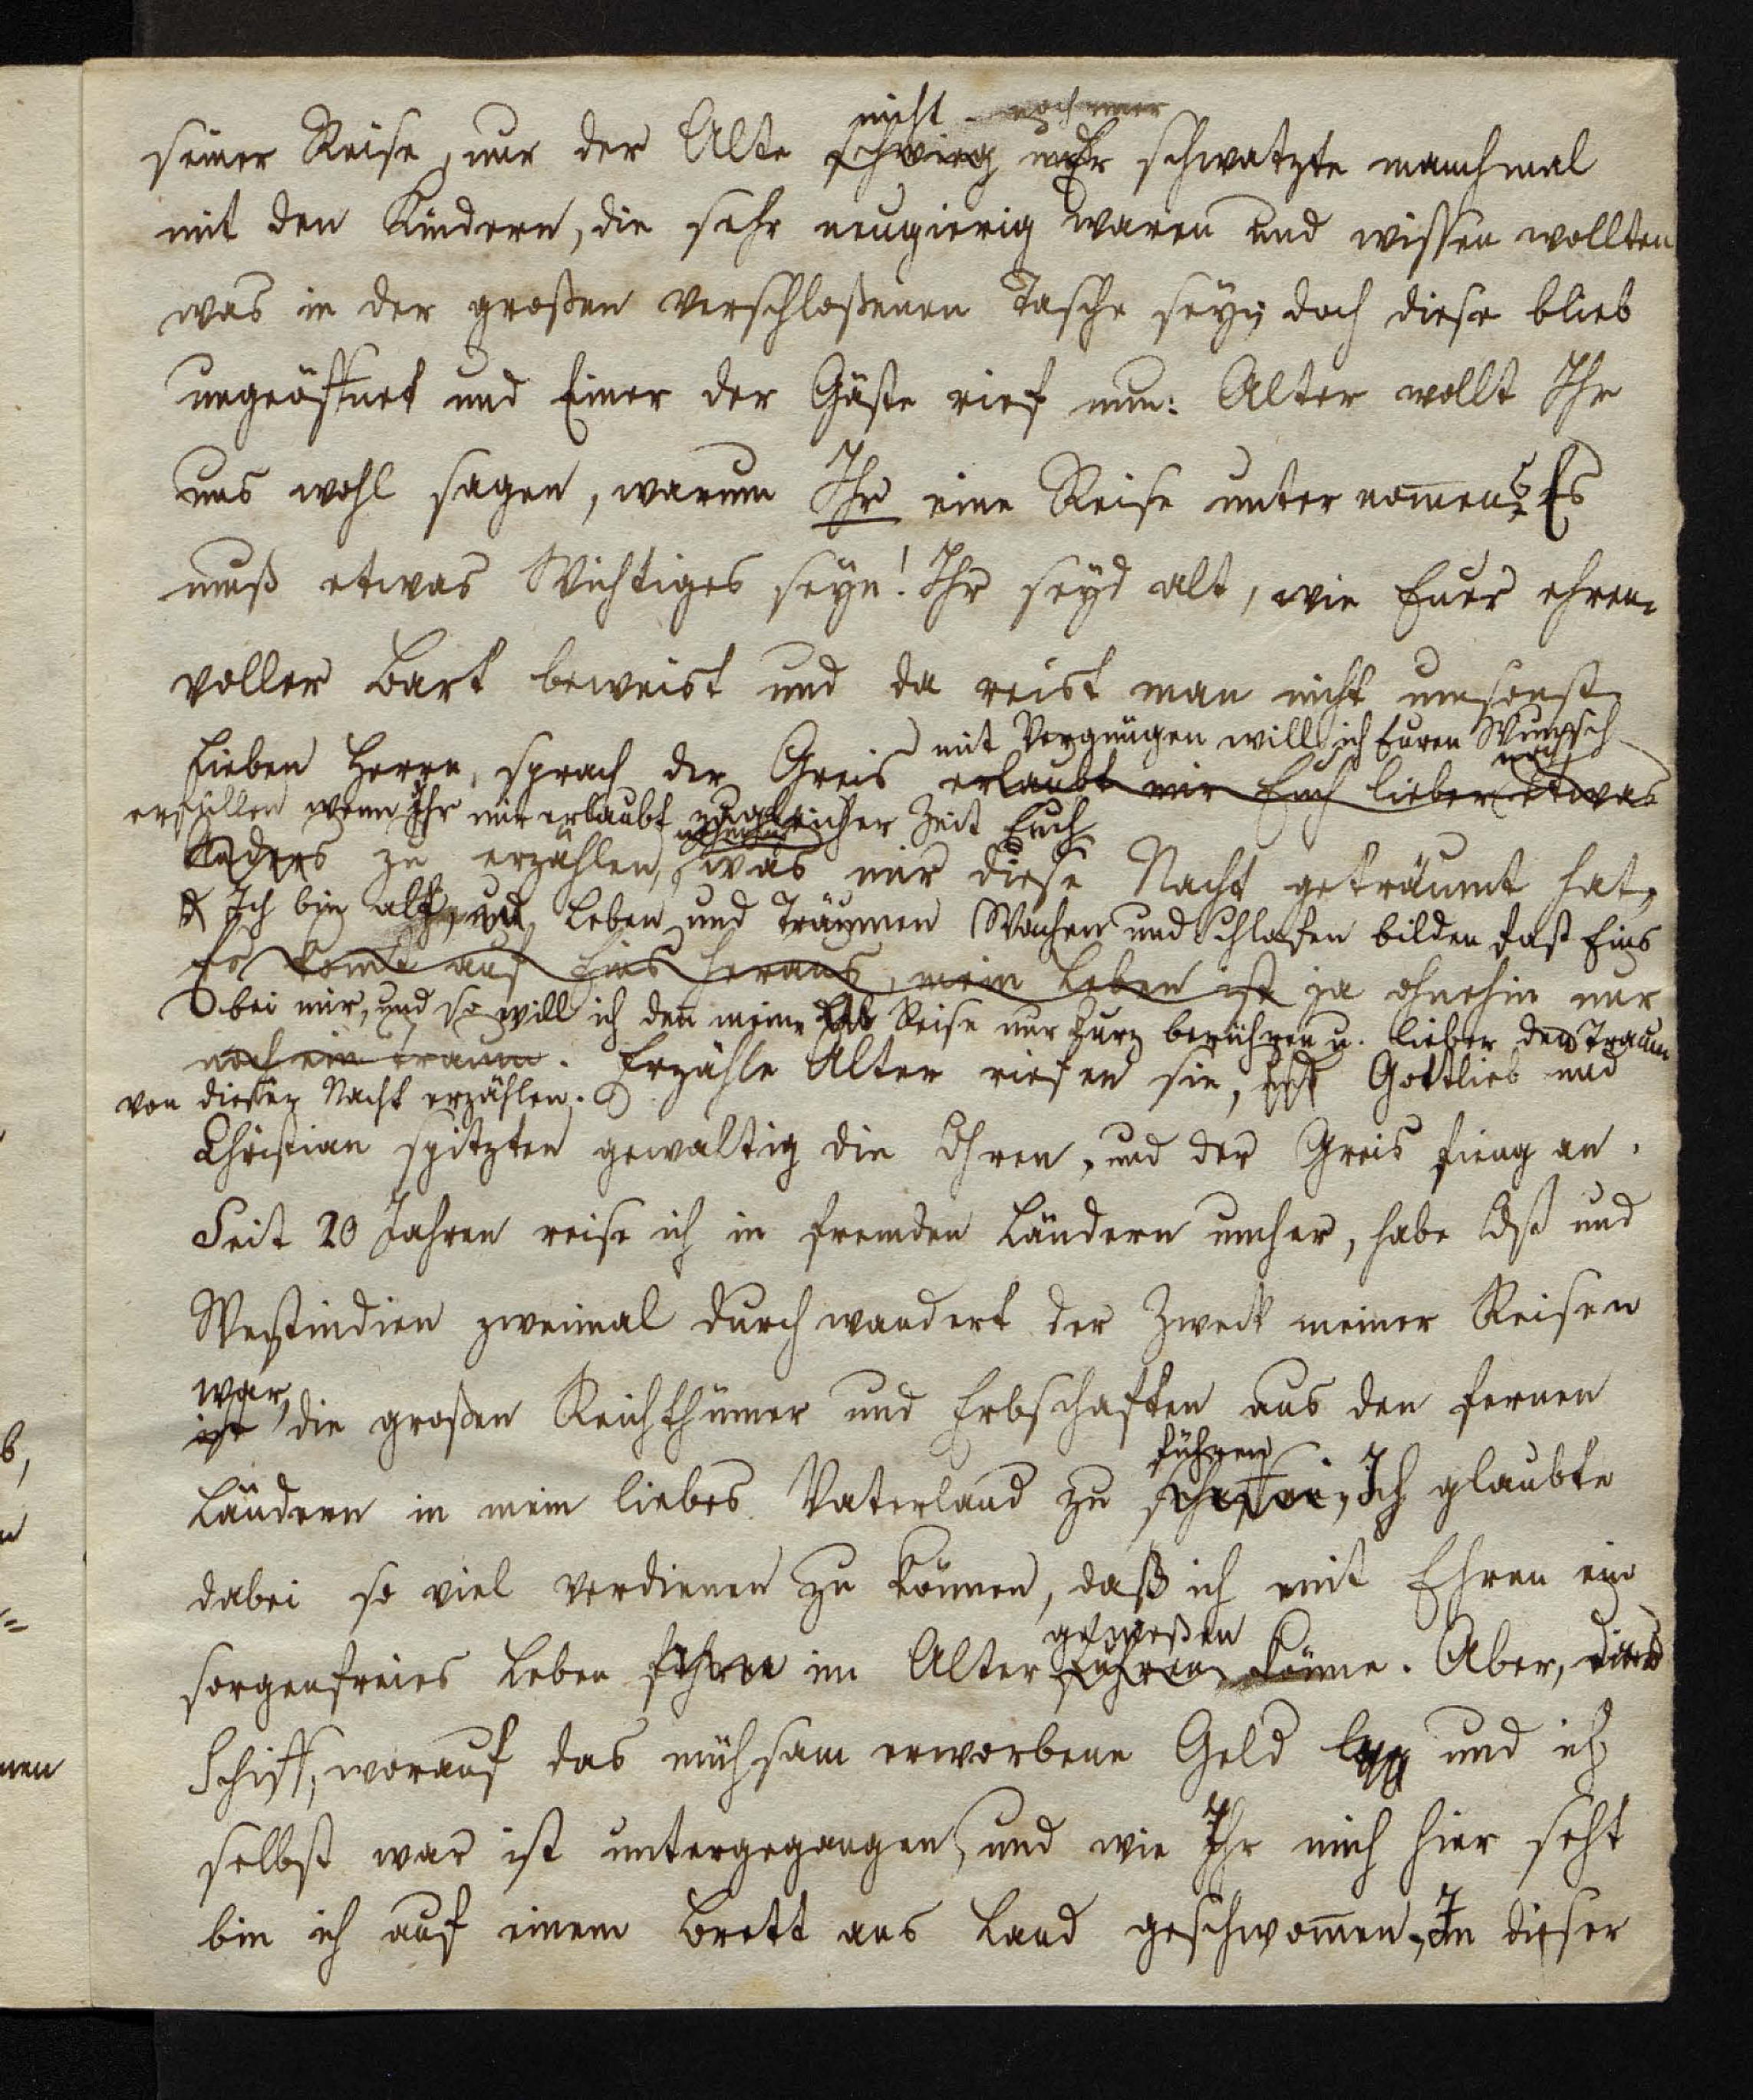 nicht noch immer
seiner Reise, nur der Alte schwieg mehr schwatzte manchmal
mit den Kindern, die sehr neugierig waren und wissen wollten
was in der großen verschloßenen Tasche sey; doch diese blieb
ungeöffnet und Einer der Gäste rief nun: Alter wollt Ihr
uns wohl sagen, warum Ihr eine Reise unternom̄en? Es
muß etwas Wichtiges seyn! Ihr seyd alt, wie Euer ehren-
voller Bart beweist und da reist man nicht umsonst.
mit Vergnügen will ich Euren Wunsch
Lieben Herrn, sprach der Greis erlaubt mir Euch lieber noch etwas
erfüllen wenn Ihr mir erlaubt zu gleicher Zeit Euch
Anders zu erzählen, was mir diese Nacht geträumt hat,
Ich bin alt, und Leben und Träumen Wachen und Schlafen bilden fast Eins
Es kom̄t auf Eins heraus, mein Leben ist ja ohnehin nur
bei mir, und so will ich den̄ meine Reise nur kurz berühren u. lieber den Traum
noch ein Traum. Erzähle Alter riefen sie, Gottlieb und
von dieser Nacht erzählen.
Christian spitzten gewaltig die Ohren, und der Greis fieng an.
Seit 20 Jahren reise ich in fremden Ländern umher, habe Ost und
Westindien zweimal durchwandert der Zweck meiner Reisen
war,
ist die großen Reichthümer und Erbschaften aus den fernen
führen
Ländern in mein liebes Vaterland zu schaffen, Ich glaubte
dabei so viel verdienen zu können, daß ich mit Ehren ein
genießen
sorgenfreies Leben führen im Alter führen könne. Aber, das
Schiff, worauf das mühsam erworbene Geld lag und ich
selbst war ist untergegangen, und wie Ihr mich hier seht
bin ich auf einem Brett ans Land geschwom̄en, In dieser